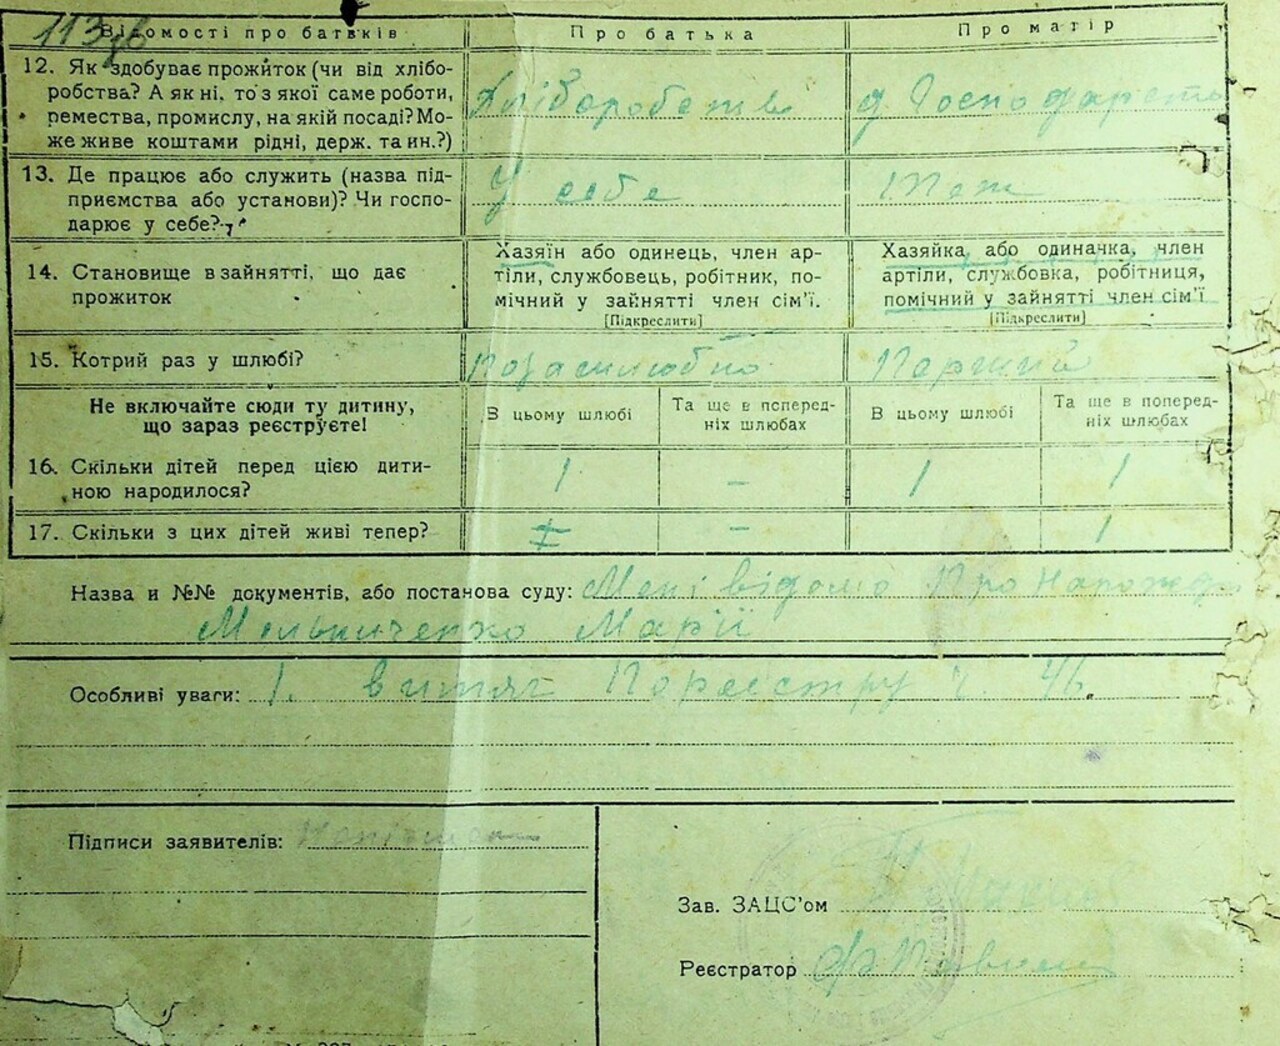 113зв
Відомості про батьків Про батька Про матір
12. Як здобуває прожиток (чи від хлібо-
робства? А як ні, то з якої саме роботи,
ремества, промислу, на якій посаді? Мо-
же живе коштами рідні, держ. та ин.?)
Хліборобств д. Господарств
13. Де працює або служить (назва під-
приємства або установи)? Чи госпо-
дарює у себе?
У себе теж
14. Становище в зайнятті, що дає
прожиток
Хазяїн або одинець, член ар-
тіли, службовець, робітник, по-
мічний у зайнятті член сім'ї.
[Підкреслити]
Хазяйка, або одиначка, член
артіли, службовка, робітниця,
помічний у зайнятті член сім'ї
[Підкреслити]
15. Котрий раз у шлюбі? Позашлюбно Перший
Не включайте сюди ту дитину,
що зараз реєструєте!
В цьому шлюбі
Та ще в поперед-
ніх шлюбах
В цьому шлюбі
Та ще в поперед-
ніх шлюбах
16. Скільки дітей перед цією дити-
ною народилося?
1 – 1 1
17. Скільки з цих дітей живі тепер? – 1
Назва и №№ документів, або постанова суду: Мені відомо про
Мельниченко Марії
Особливі уваги: 1. витяг По реєстру ч. 46.
Підписи заявителів:
Зав. ЗАЦС'ом
Реєстратор